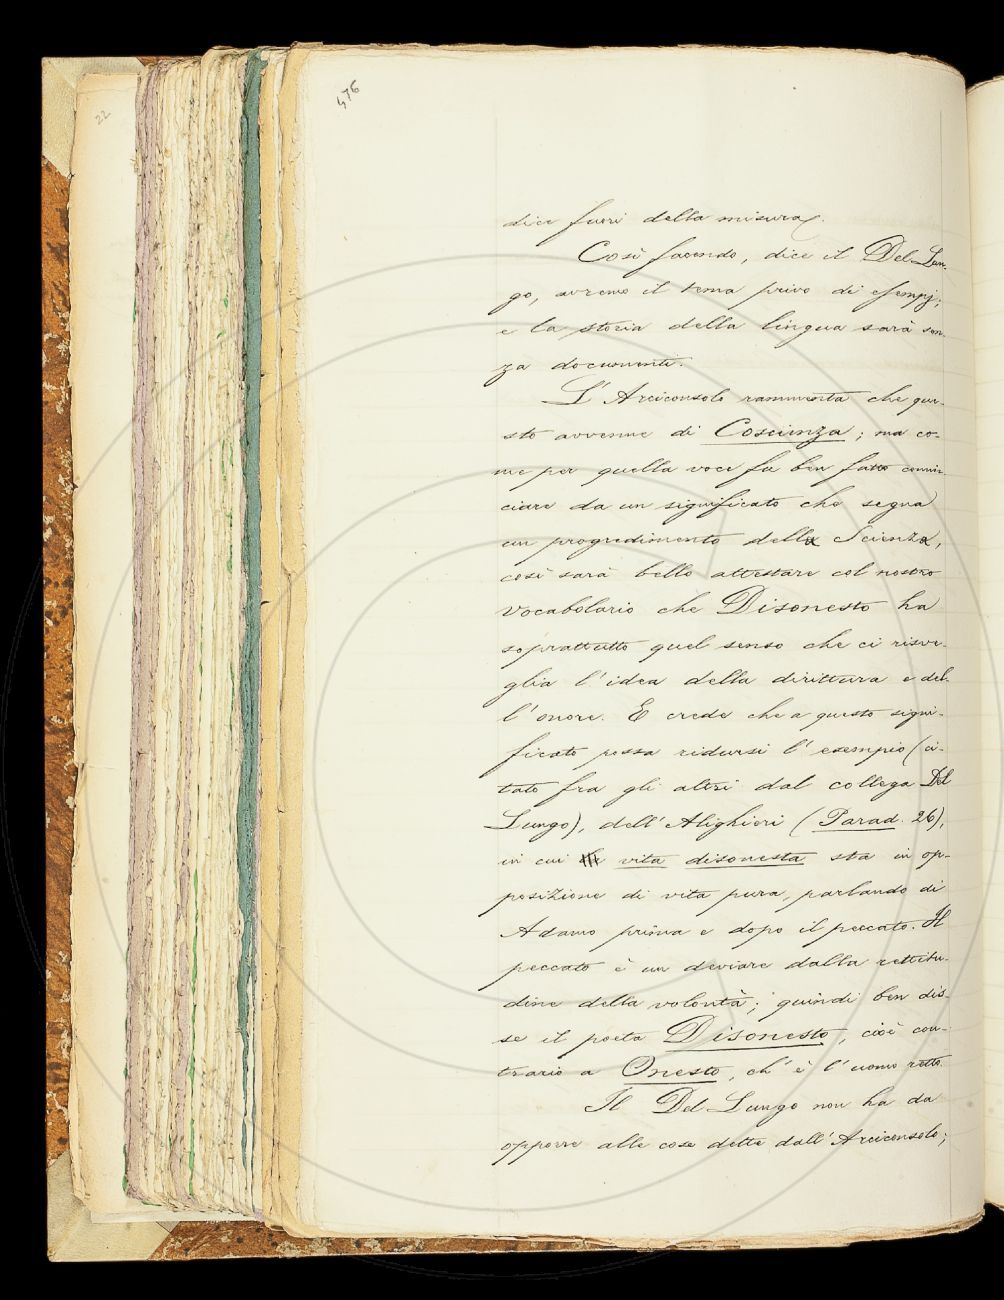 476
22
dice fuori della misura.
Così facendo, dice il Del Lun-
go, avremo il tema privo di esempj;
e la storia della lingua sarà sen-
za documenti.
L'Arciconsolo rammenta che que-
sto avvenne di Coscienza; ma co-
me per quella voce fu ben fatto comin-
ciare da un significato che segna
un progredimento della Scienza,
così sarà bello attestare col nostro
vocabolario che Disonesto ha
soprattutto quel senso che ci risve-
glia l'idea della dirittura e del-
l'onore. E crede che a questo signi-
ficato possa ridursi l'esempio (ci-
tato fra gli altri dal collega Del
Lungo), dell'Alighieri (Parad. 26),
in cui vita disonesta sta in op-
posizione di vita pura, parlando di
Adamo prima e dopo il peccato. Il
peccato è un deviare dalla rettitu-
dine della volontà; quindi ben dis-
se il poeta Disonesto, cioè con-
trario a Onesto, ch'è l'uomo retto.
Il Del Lungo non ha da
opporre alle cose dette dall'Arciconsolo;